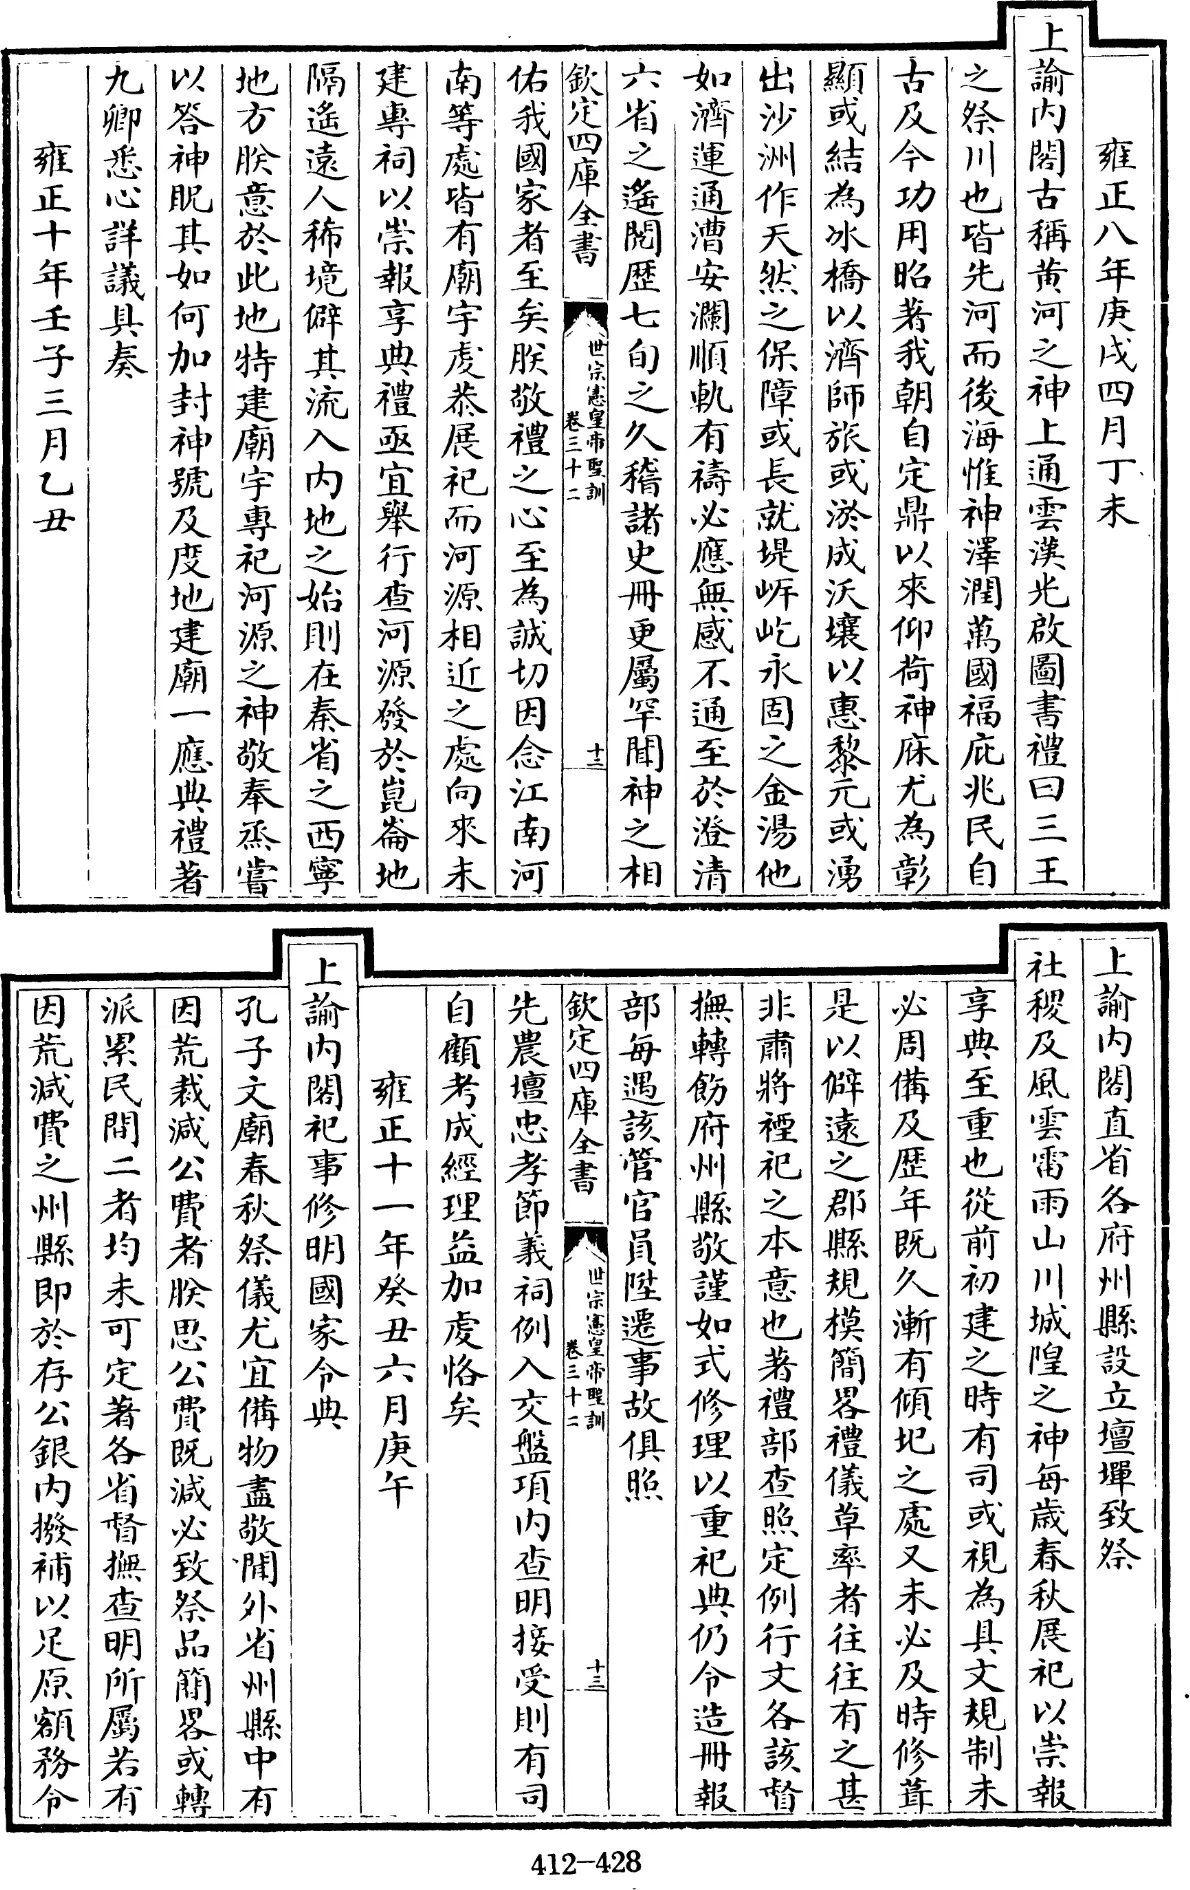 雍正八年庚戌四月丁未
上諭内閣古稱黄河之神上通雲漢光啟圖書禮曰三王
之祭川也皆先河而後海惟神澤潤萬國福庇兆民自
古及今功用昭著我朝自定鼎以來仰荷神庥尤為彰
顯或結為冰橋以濟師旅或淤成沃壤以惠黎元或湧
出沙洲作天然之保障或長就堤㟁屹永固之金湯他
如濟運通漕安瀾順軌有禱必應無感不通至於澄清
六省之遙閲歴七旬之久稽諸史冊更屬罕聞神之相
欽定四庫全書
世宗憲皇帝聖訓
卷三十二
十二
佑我國家者至矣朕敬禮之心至為誠切因念江南河
南等處皆有廟宇䖍㳟展祀而河源相近之處向來未
建專祠以崇報享典禮亟宜舉行查河源發於崑崙地
隔遙逺人稀境僻其流入内地之始則在秦省之西寧
地方朕意於此地特建廟宇專祀河源之神敬奉烝嘗
以答神貺其如何加封神號及度地建廟一應典禮著
九卿悉心詳議具奏
雍正十年壬子三月乙丑
上諭内閣直省各府州縣設立壇墠致祭
社稷及風雲雷雨山川城隍之神每歲春秋展祀以崇報
享典至重也從前初建之時有司或視為具文規制未
必周備及歴年既久漸有傾圯之處又未必及時修葺
是以僻逺之郡縣規模簡畧禮儀草率者往往有之甚
非肅將禋祀之本意也著禮部查照定例行文各該督
撫轉飭府州縣敬謹如式修理以重祀典仍令造冊報
部每遇該管官員陞遷事故俱照
欽定四庫全書
世宗憲皇帝聖訓
卷三十二
十三
先農壇忠孝節義祠例入交盤項内查明接受則有司
自顧考成經理益加䖍恪矣
雍正十一年癸丑六月庚午
上諭内閣祀事修明國家令典
孔子文廟春秋祭儀尤宜備物盡敬聞外省州縣中有
因荒裁減公費者朕思公費既減必致祭品簡畧或轉
派累民間二者均未可定著各省督撫查明所屬若有
因荒減費之州縣即於存公銀内撥補以足原額務令
412-428